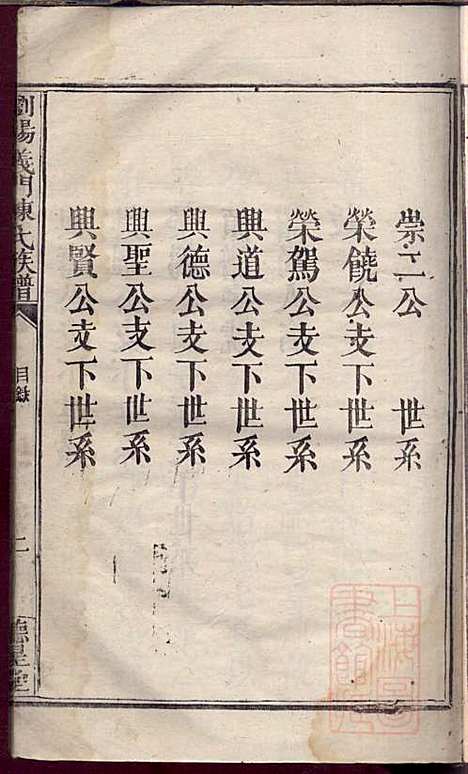 崇二公　世系
榮饒公支下世系
榮駕公支下世系
興道公支下世系
興德公支下世系
興聖公支下世系
興賢公支下世系
瀏陽義門陳氏族譜
目錄
二
德星堂
上海圖書館藏